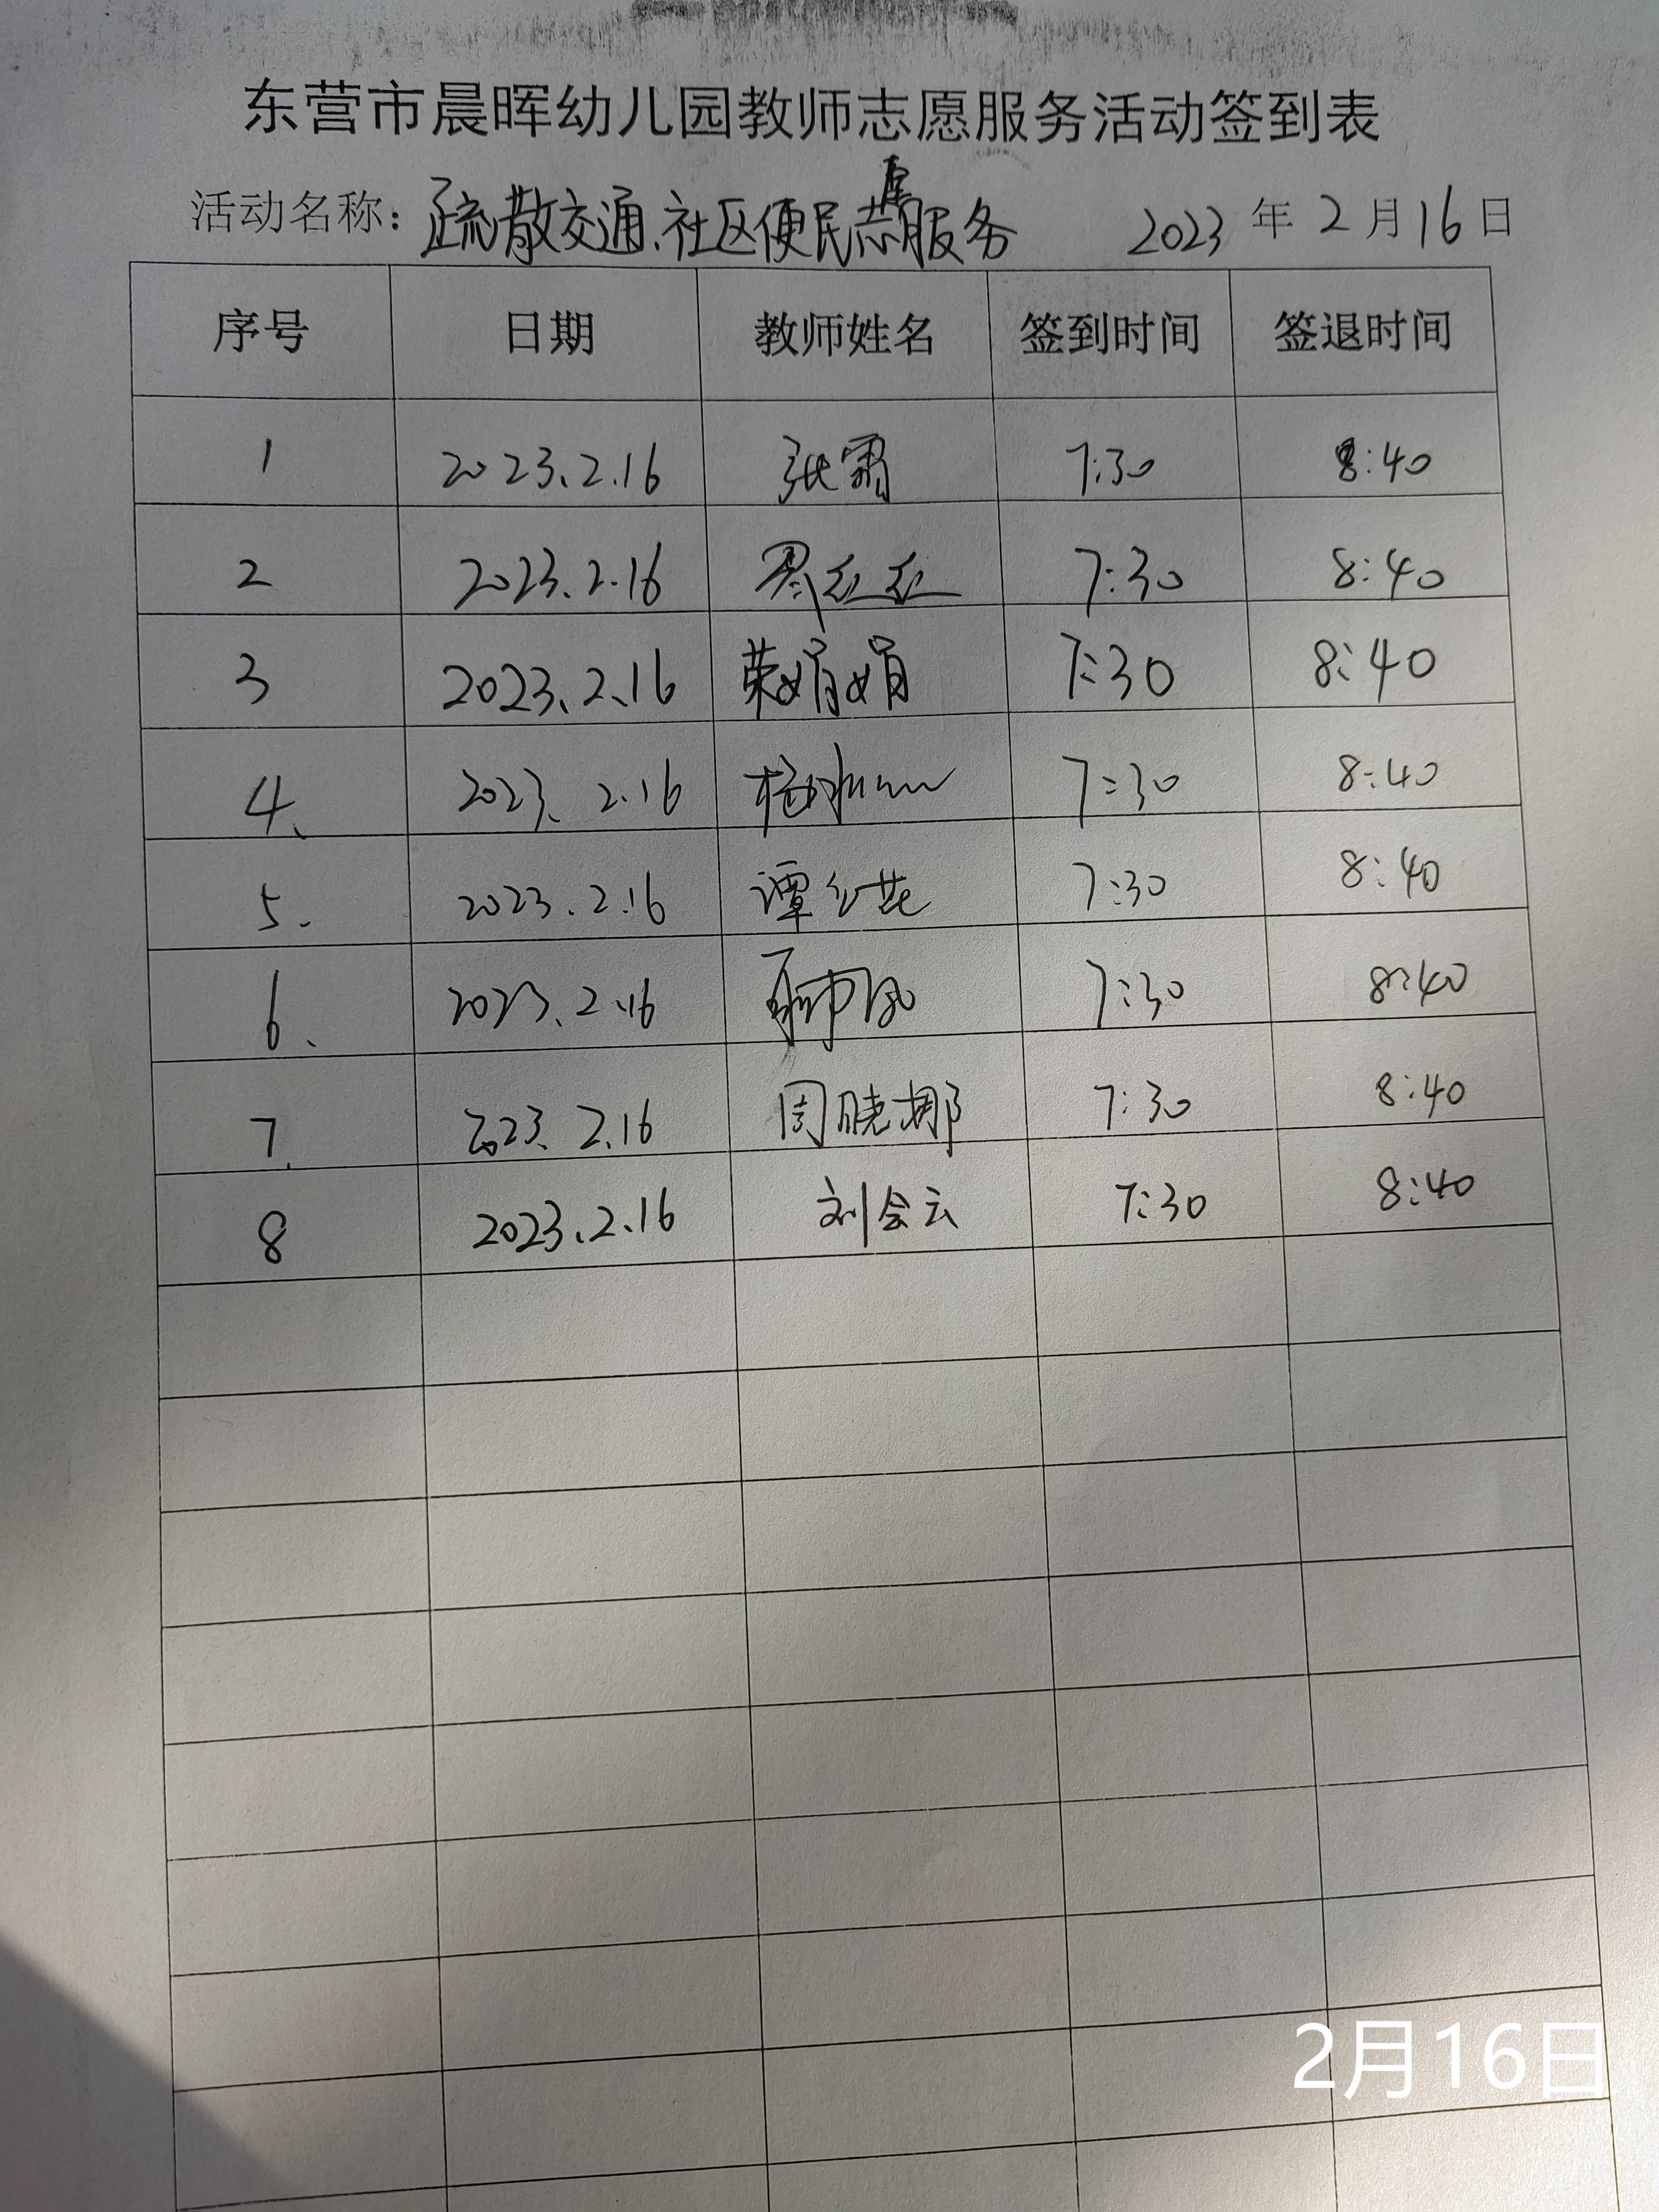 东营市晨晖幼儿园教师志愿服务活动签到表
活动名称：疏散交通、社区便民志愿服务 2023年2月16日
序号 日期 教师姓名 签到时间 签退时间
1 2023.2.16 张霄 7:30 8:40
2 2023.2.16 7:30 8:40
3 2023.2.16 荣娟娟 7:30 8:40
4、 2023.2.16 7:30 8:40
5. 2023.2.16 谭红芸 7:30 8:40
6、 2023.2.16 7:30 8:40
7、 2023.2.16 周晓娜 7:30 8:40
8 2023.2.16 刘会云 7:30 8:40
2月16日